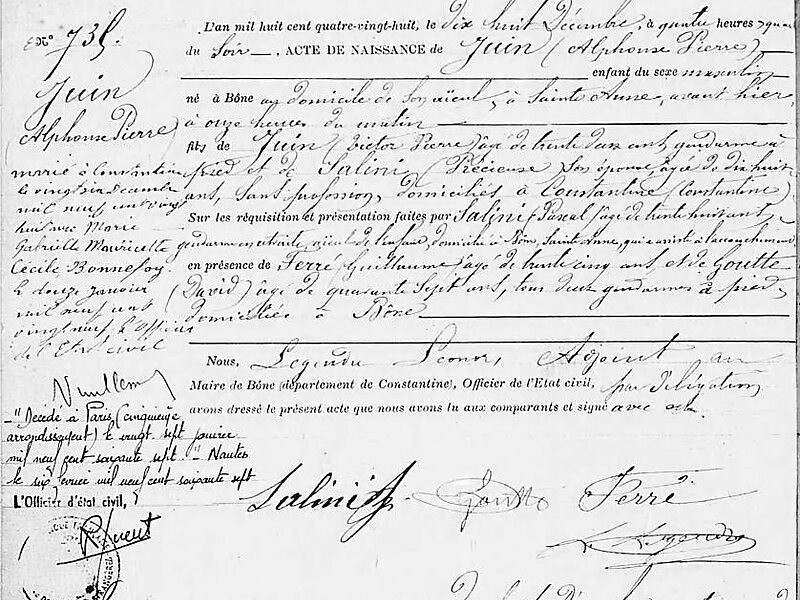 N° 735.
Juin
(Alphonse Pierre)
marié à Constantine
le vingt six décembre
mil neuf cent vingt
huit avec Marie
Gabrielle Mauricette
Cécile Bonnefoy.
le douze janvier
mil neuf cent
vingt neuf. L'Officier
de l'Etat civil
"Décédé à Paris (cinquième
arrondissement) le vingt sept janvier
mil neuf cent soixante sept." - Nantes
le six février mil neuf cent soixante sept
L'Officier d'état civil,
L'an mil huit cent quatre-vingt-huit, le dix huit Décembre, à quatre heures
du soir, ACTE DE NAISSANCE de Juin (Alphonse Pierre)
enfant du sexe masculin
né à Bône au domicile de son aïeul, à Sainte Anne, avant hier,
à onze heures du matin
fils de Juin (Victor Pierre) âgé de trente deux ans, gendarme à
pied et de Salini (Précieuse) son épouse, âgée de dix huit
ans, sans profession, domiciliés à Constantine (Constantine)
Sur les réquisition et présentation faites par Salini Pascal âgé de ans,
gendarme en retraite, aïeul de l'enfant, domicilié à Bône, Sainte Anne, qui a assisté à l'accouchement
en présence de Ferré (Guillaume) âgé de trente cinq ans et de Goutte
(David) âgé de quarante sept ans, tous deux gendarmes à pied,
domiciliés à Bône
Nous, Legendre Adjoint au
Maire de Bône (département de Constantine), Officier de l'Etat civil, par délégation
avons dressé le présent acte que nous avons lu aux comparants et signé avec eux.
Salini Goutte Ferré